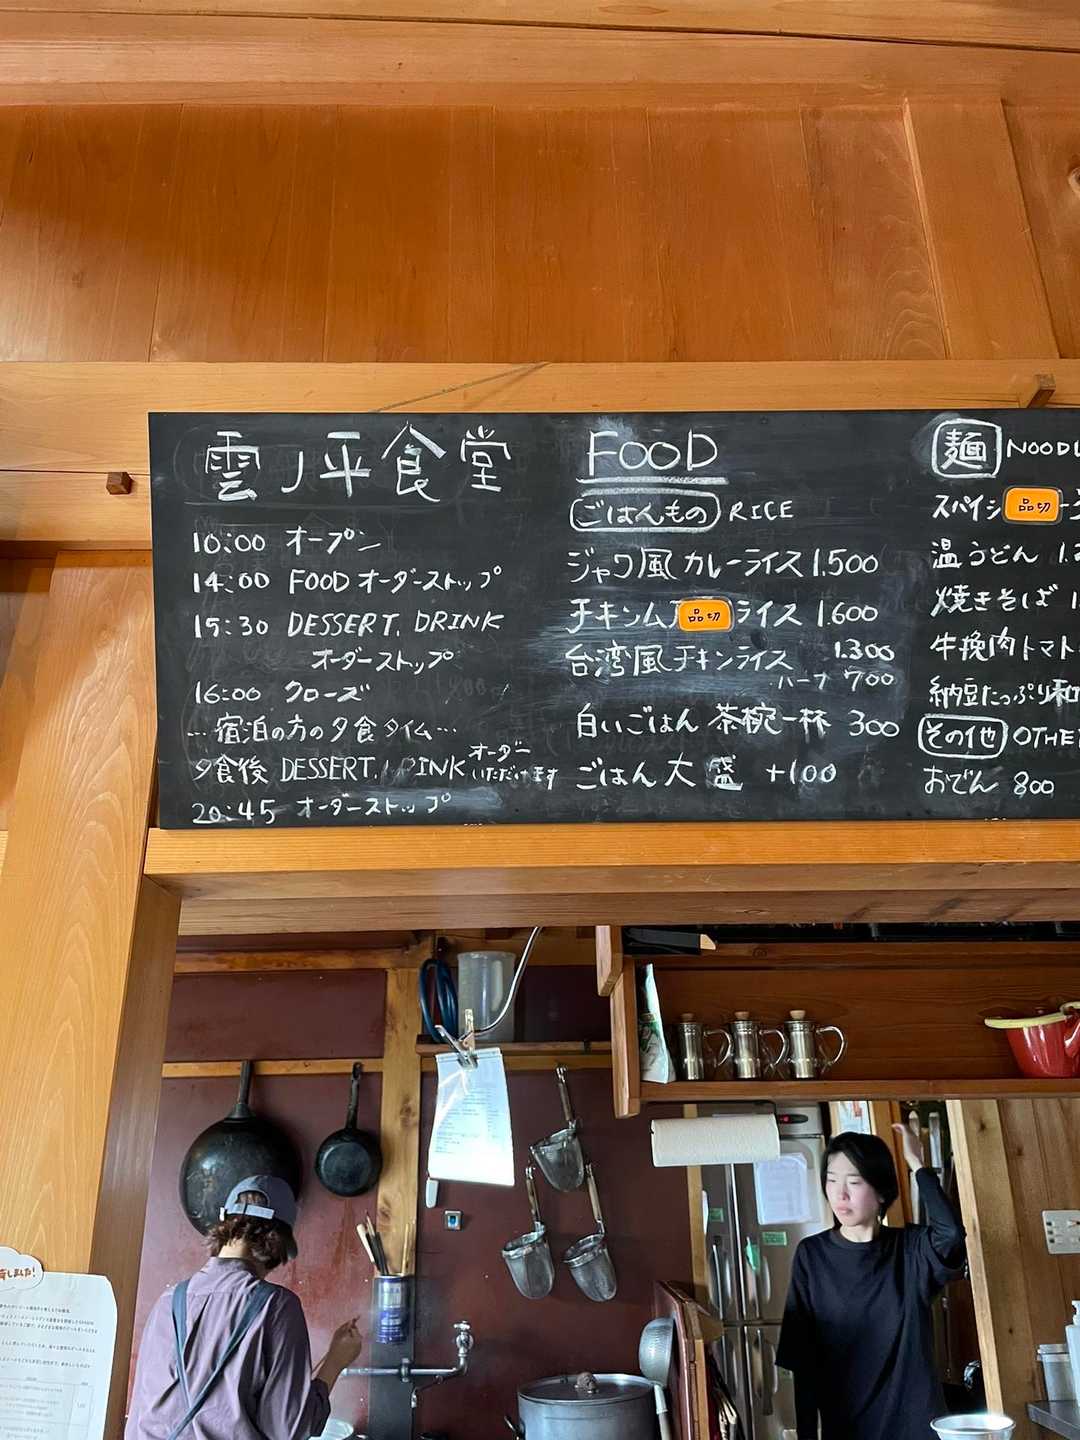 雲ノ平食堂
10:00 オープン
14:00 FOOD オーダーストップ
15:30 DESSERT. DRINK
オーダーストップ
16:00 クローズ
…宿泊の方の夕食タイム…
夕食後 DESSERT. DRINK オーダーいただけます
20:45 オーダーストップ
FOOD
ごはんもの RICE
ジャワ風カレーライス 1.500
チキンム 品切 ライス 1.600
台湾風チキンライス 1.300
ハーフ 700
白いごはん 茶椀一杯 300
ごはん大盛 +100
麺 NOODL
スパイシ 品切
温うどん 1.2
焼きそば 1
牛挽肉トマト
納豆たっぷり和
その他 OTHE
おでん 800